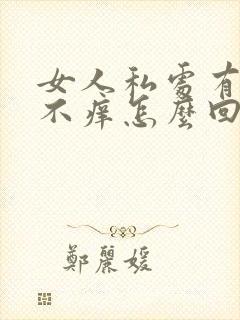 女人私處有
不痒怎麼回
鄭麗媛